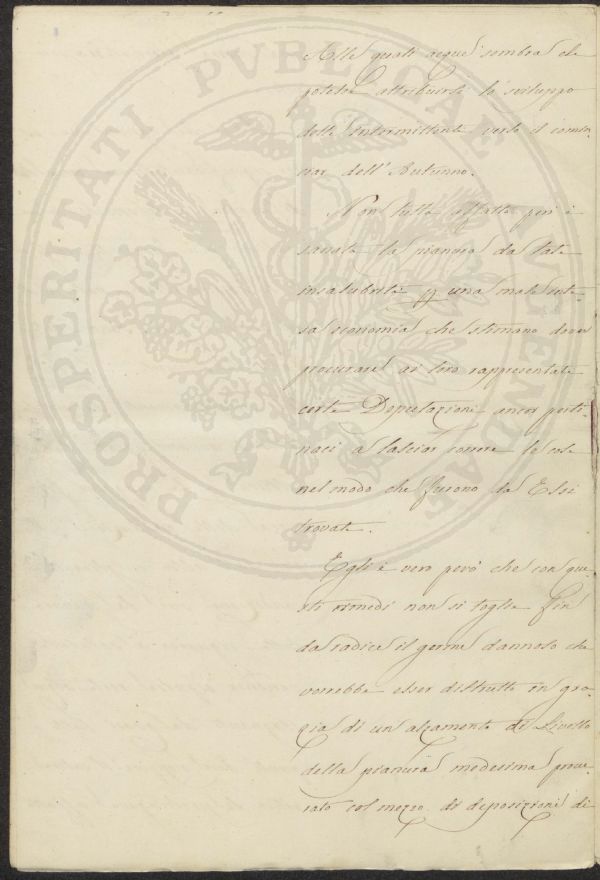 PROSPERITATI PVBLICAE AVGENDAE
Alle quali acque sembra che
potesse attribuirsi lo sviluppo
delle Intermittenti verso il comin
ciar dell'Autunno.
Non tutta affatto però è
sanata la pianura da tale
insalubrità p una male inte-
sa economia che stimano dover
procurare ai loro rappresentati
certe Deputazioni ancor perti-
naci a lasciar correre le cose
nel modo che furono da Essi
trovate.
Egli è vero però che con que
sti rimedi non si toglie fin
da radice il germe dannoso che
vorrebbe esser distrutto in gra-
zia di un alzamento di Livello
della pianura medesima procu-
rato col mezzo di deposizioni di